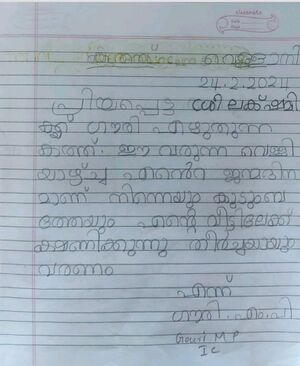 classmate
Date
Page
വെള്ളാനി
24.2.2024
പ്രിയപ്പെട്ട ശ്രീലക്ഷ്മി
ക്ക് ഗൗരി എഴുതുന്ന
കത്ത്. ഈ വരുന്ന വെള്ളി
യാഴ്ച്ച എൻെറ ജന്മദിന
മാണ് നിന്നെയും കുടുംബ
ത്തേയും എന്റെ വീട്ടിലേക്ക്
ക്ഷണിക്കുന്നു തീർച്ചയായും
വരണം
എന്ന്
ഗൗരി.എം.പി
Gouri M P
I C